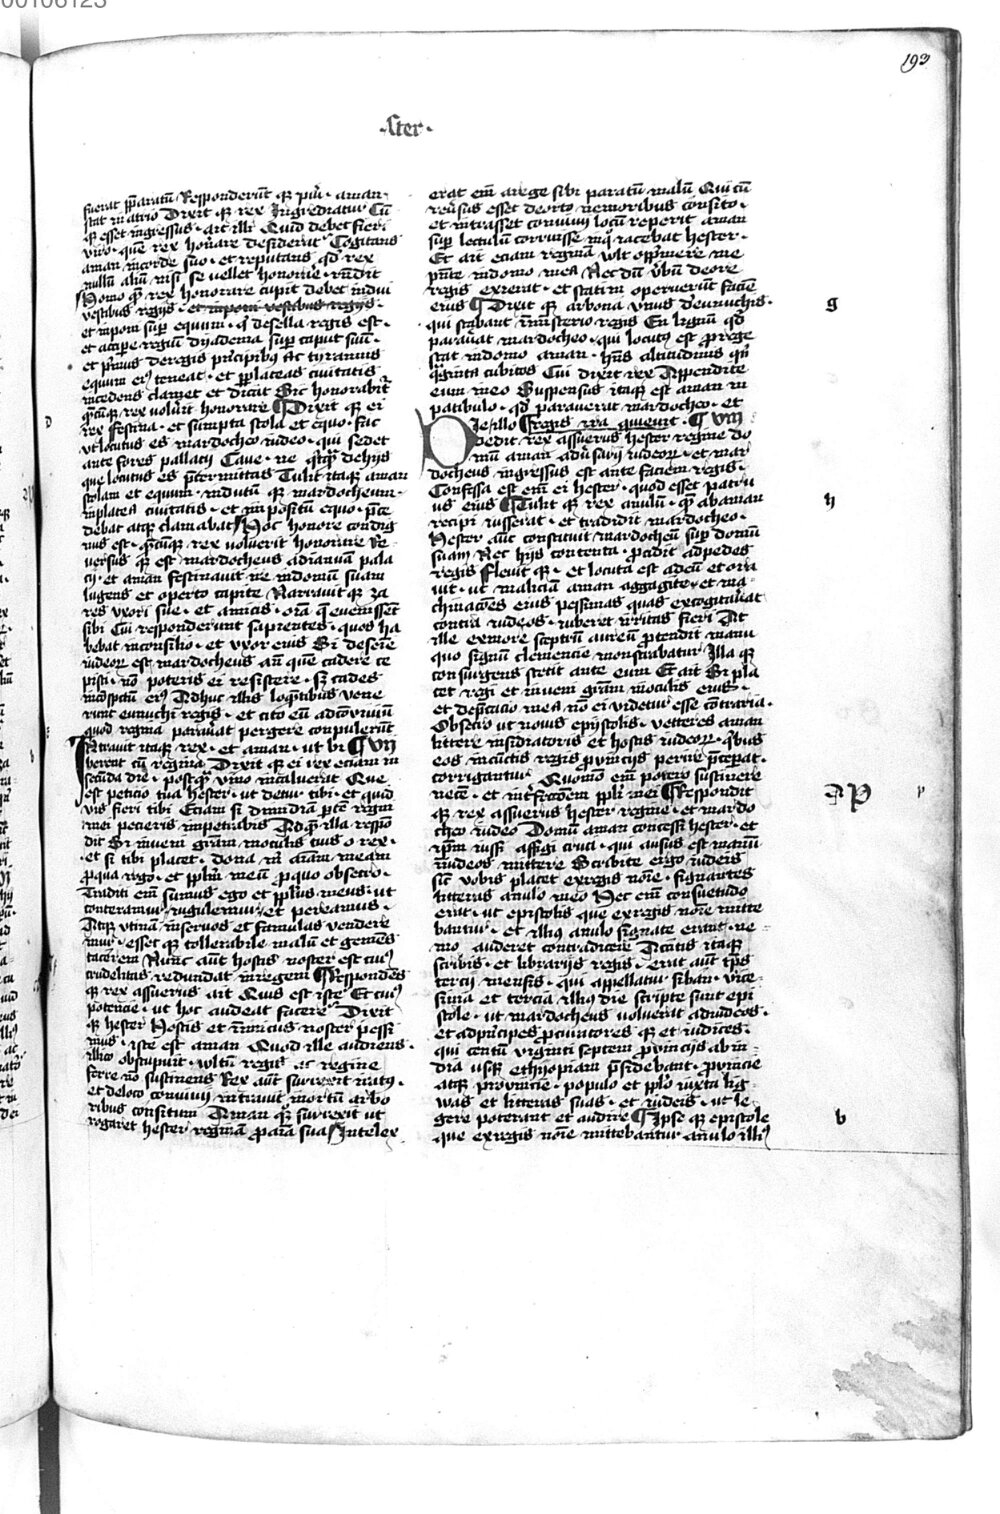 193
·ster·
fuerat pparatū Responderūt qꝫ pu͛i · aman
stat in atrio Dixit qꝫ rex Ingrediatur Cū
qꝫ esset ingressus · ait illi Quid debet fieri
viro · quē rex hon̄are desiderat Cogitans
aman in corde suo · et reputans qd̄ rex
nullū aliū nisi se vellet honorare · rn̄dit
Homo quē rex honorare cupit debet indui
vestibus regijs · et inponi vestibus regijs ·
et inponi sup̄ equum · qͥ de sella regis est ·
et accipe regiū dyadema sup̄ caput suū ·
et pͥmus de regis pͥncipibus Ac tyrannis
equum eiꝰ teneat · et p plateas ciuitatis
incedens clamet et dicat Sic honorabit͛
qͥcūqꝫ rex volu͛it honorare ¶ Dixit qꝫ ei
rex festina · et sumpta stola et equo · fac
vt locutus es mardocheo iudeo · qui sedet
ante fores pallacij Caue · ne qͥcqͣ de hijs
que locutus es p̄termittas Tulit itaqꝫ aman
stolam et equum · indutū qꝫ mardocheum ·
in platea ciuitatis · et inpositū equo · p̄ce
debat atqꝫ clamabat Hoc honore condig
nus est · qͥcūqꝫ rex voluerit honorare Re
uersus qꝫ est mardocheus ad ianuā pala
cij · et aman festinauit ire in domū suam
lugens et operto capite Narrauit qꝫ za
res vxori sue · et amicis · oīa que euenissēt
sibi Cui responderunt sapientes · quos ha
bebat in consilio · et vxor eius Si de seīe
iudeoꝝ est mardocheus añ quē cadere ce
pisti · nō poteris ei resistere · sꝫ cades
in cōspctū eiꝰ Adhuc illis loquētibus vene
runt eunuchi regis · et cito eū ad cōuiuiū
quod regina parau͛at pergere conpulerūt
Intrauit itaqꝫ rex · et aman · ut bi ¶ VII
berent cū regina Dixit qꝫ ei rex eciam in
secūda die · postqͣ vino incaluerat Que
est peticio tua hester · ut detur tibi · et quid
vis fieri tibi Eciam si dimidiā pͣtē regni
mei pecieris inpetrabis Ad qͣ illa respō
dit Si inueni grām in oculis tuis o rex ·
· et si tibi placet · dona m̄ aīam meam
pro qua rogo · et pplm̄ meū pro quo obsecro ·
Traditi em̄ sumus ego et pplus meus · ut
conteramur · iugulemur · et pereamus ·
Atqꝫ vtinā in seruos et famulas vendere
mur · esset qꝫ tollerabile malū et gemēs
tacerem Nunc aūt hostis noster est cuiꝰ
crudelitas redundat in regem ¶ Respondēs
qꝫ rex assuerus ait Quis est iste Et cuiꝰ
potencie · ut hoc audeat facere Dixit
qꝫ hester Hostis et inimicus noster pessi
mus · iste est aman Quod ille audiens ·
illico obstupuit · wltū regis ac regine
ferre nō sustinens Rex aūt surrexit iratꝰ ·
et de loco conuiuij intrauit in ortū arbo
ribus consitum Aman qꝫ surrexit ut
rogaret hester reginā pro aīa sua Intelex
erat em̄ a rege sibi paratū malū Qui cū
reu͛sus esset de orto nemoribus consito ·
et intrasset conuiuij locū reperit aman
sup̄ lectulum corruisse in qͦ iacebat hester ·
Et ait eciam reginā wlt opp̄mere me
pn̄te in domo mea Nec dū v͛bū de ore
regis exierat · et statim operuerūt faciē
eius ¶ Dixit qꝫ arbona vnus de eunuchis ·
qui stabant in mīsterio regis En lignū qd̄
parau͛at mardocheo · qui locutꝰ est pro rege
stat in domo aman · hn̄s altitudinis qn̄
quaginta cubitos Cui dixit rex Appendite
eum in eo Suspensus itaqꝫ est aman in
patibulo · qd̄ parauerat mardocheo · et
¶ regis ira quieuit · ¶ VIII
Die illo
dedit rex assuerus hester regine do
mū aman adu͛sarij iudeoꝝ · et mar
docheus ingressus est ante faciem regis ·
Confessa est em̄ ei hester · quod esset patru
us eius ¶ Tulit qꝫ rex anulū · quē ab aman
recipi iusserat · et tradidit mardocheo ·
Hester aūt constituit mardocheū sup̄ domū
suam Nec hijs contenta · pcidit ad pedes
regis fleuit qꝫ · et locuta est ad eū et ora
uit · ut maliciā aman aggagite · et ma
chinacōes eius pessimas quas excogitau͛at
contra iudeos · iuberet irritas fieri At
ille ex more sceptrū aureū p̄tendit manu
quo signū clemencie monstrabatur Illa qꝫ
consurgens stetit ante eum Et ait Si pla
cet regi et inueni grām in oculis eius ·
et dep̄cacio mea nō ei videtur esse contraria ·
Obsecro ut nouis epistolis · vetteres aman
littere insidiatoris et hostis iudeoꝝ · qͥbus
eos in cūctis regis prouincijs perire p̄cepat ·
corrigantur Quomō em̄ potero sustinere
necē · et int͛fectōem ppli mei ¶ Respondit
qꝫ rex assuerus hester regine · et mardo
cheo iudeo Domū aman concessi hester · et
ip̄m iussi affigi cruci · qui ausus est manū
in iudeos mittere Scribite ergo iudeis
sic̄ vobis placet ex regis noīe · signantes
litteras anulo meo Hec em̄ consuetudo
erat · ut epistolis que ex regis noīe mitte
bantur · et illius anulo signate erant · ne
mo auderet contradicere Accitis itaqꝫ
scribis · et librarijs regis · erat aūt tp̄s
tercij mensis · qui appellatur siban · vice
sima et tercia illius die scripte sunt epi
stole · ut mardocheus voluerat ad iudeos ·
et ad principes procuratores qꝫ et iudices ·
qui centū viginti septem prouincijs ab in
dia usqꝫ ethyopiam p̄sidebant · prouincie
atqꝫ prouincie · populo et pplo iuxta lig
was et litteras suas · et iudeis · ut le
gere poterant et audire ¶ Ipse qꝫ epistole
que ex regis noīe mittebantur anulo illiꝰ
g
h
b